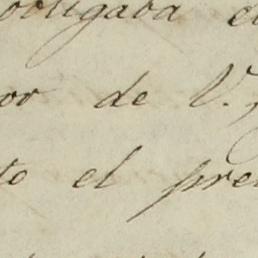 obligaba e
or de V.
to el pre